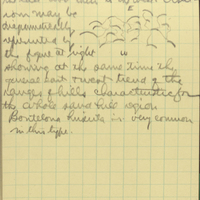 may be
diagramatically
represented by
the figure at right
showing at the same time the
general east & west trend of the
ranges of hills characteristic for
the whole sand hill region
Bouteloua hirsuta is very common
in this type.